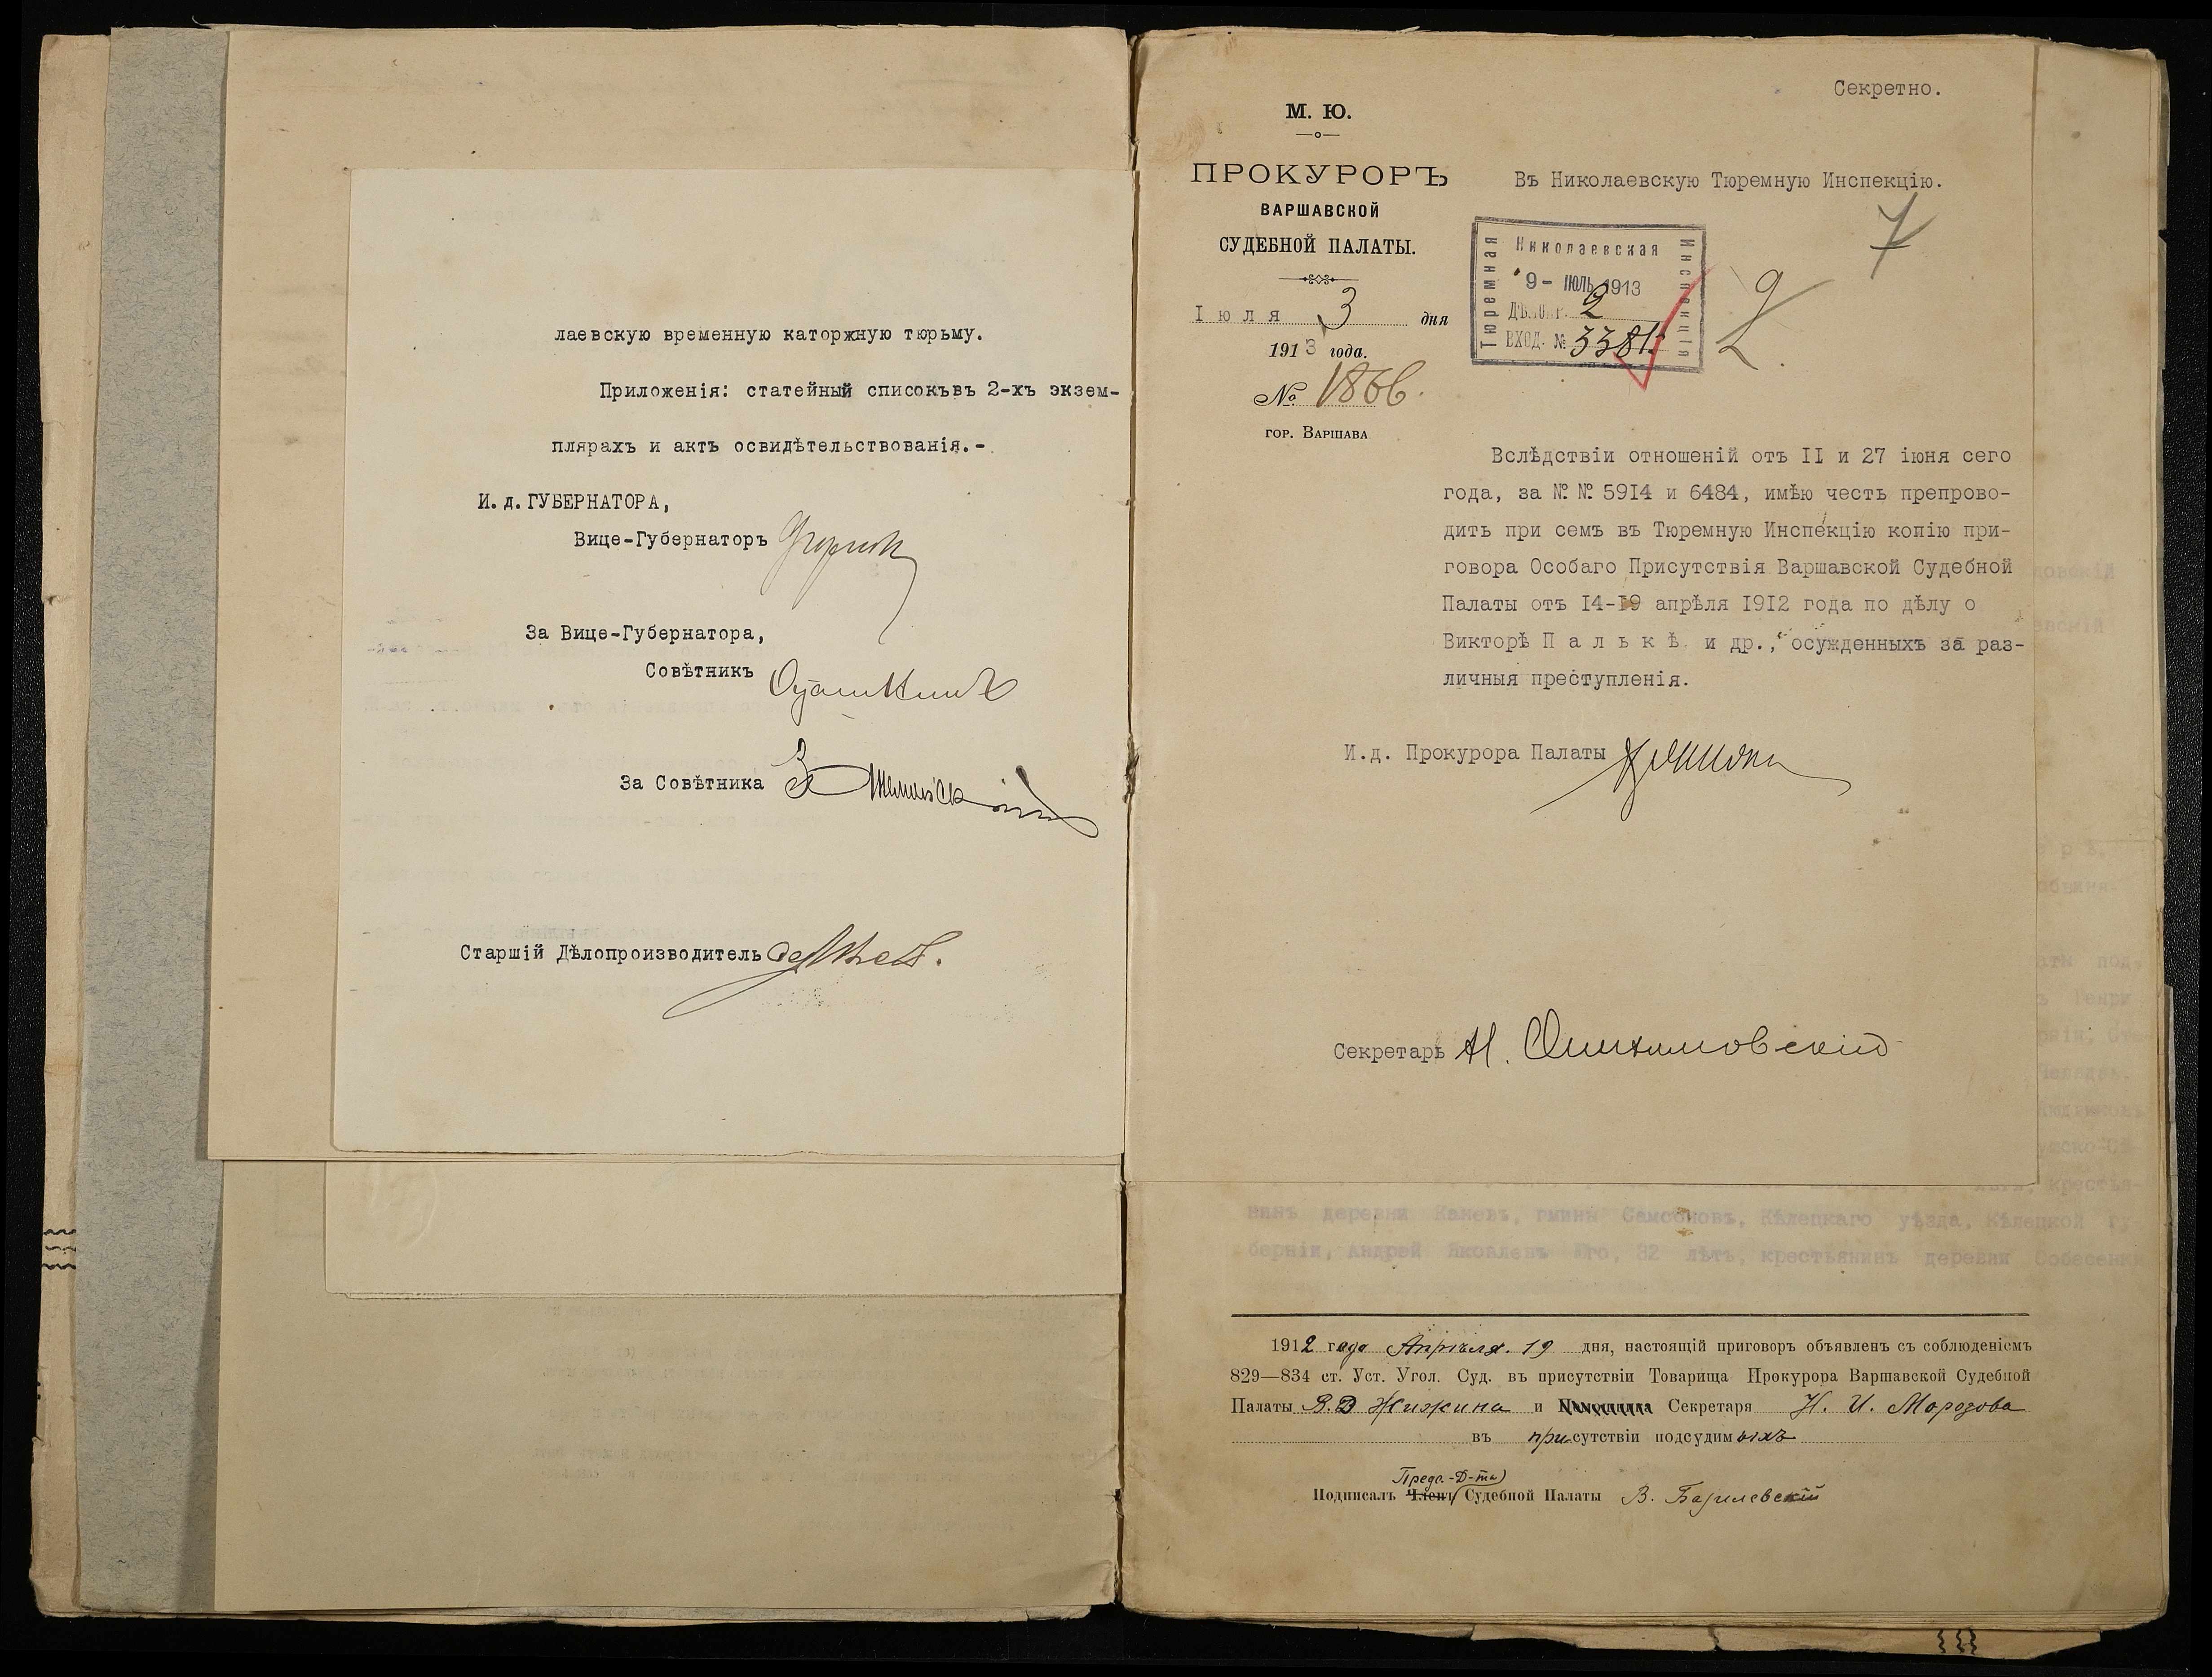 лаевскую временную каторжную тюрьму.
Приложенія: статейный списокъвъ 2-хъ экзем-
плярахъ и актъ освидѣтельствованія.-
И. д. ГУБЕРНАТОРА,
Вице-Губернаторъ
За Вице-Губернатора,
Совѣтникъ
За Совѣтника
Старшій Дѣлопроизводитель
Секретно.
М. Ю.
ПРОКУРОРЪ
ВАРШАВСКОЙ
СУДЕБНОЙ ПАЛАТЫ.
Іюля 3 дня
1913 года.
№ 1866.
гор. Варшава
Въ Николаевскую Тюремную Инспекцію.
7
Николаевская
Тюремная
Инспекція
9- ІЮЛЬ 1913
ДѢЛОПР. 2
ВХОД. № 3381.
Вслѣдствіи отношеній отъ II и 27 іюня сего
года, за №№ 5914 и 6484, имѣю честь препрово-
дить при семъ въ Тюремную Инспекцію копію при-
говора Особаго Присутствія Варшавской Судебной
Палаты отъ I4-I9 апрѣля I9I2 года по дѣлу о
Викторѣ П а л ь к ѣ и др., осужденныхъ за раз-
личныя преступленія.
И.д. Прокурора Палаты
Секретарь
нинъ деревни Каневъ, гмины Самсоновъ, Кѣлецкаго уѣзда, Кѣлецкой гу-
берніи, Андрей Яковлевъ 32 лѣтъ, крестьянинъ деревни
1912 года Апрѣля 19 дня, настоящій приговоръ объявленъ съ соблюденіемъ
829—834 ст. Уст. Угол. Суд. въ присутствіи Товарища Прокурора Варшавской Судебной
Палаты В. Д Жижина и Секретаря Н. И. Морозова
въ присутствіи подсудимыхъ
Предс.-Д-та
Подписалъ Членъ Судебной Палаты В.